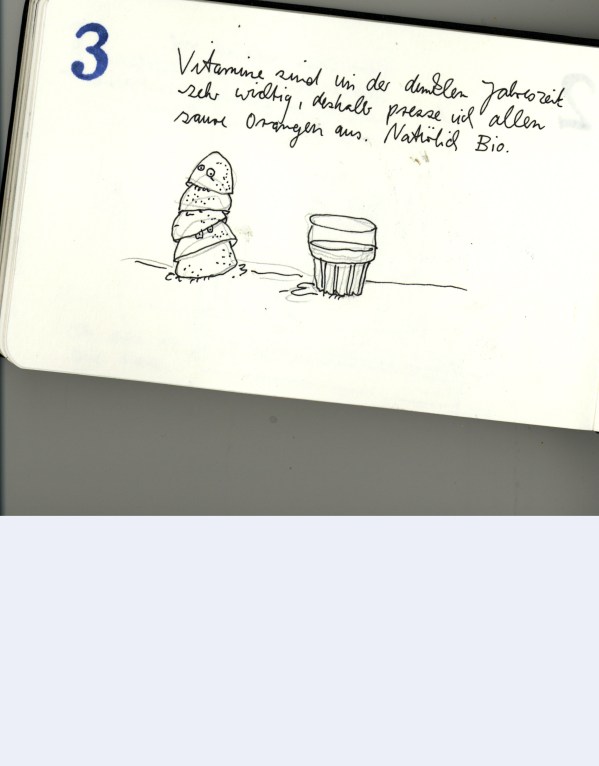 3
Vitamine sind in der dunklen Jahreszeit
sehr wichtig, deshalb presse ich allen
saure Orangen aus. Natürlich Bio.